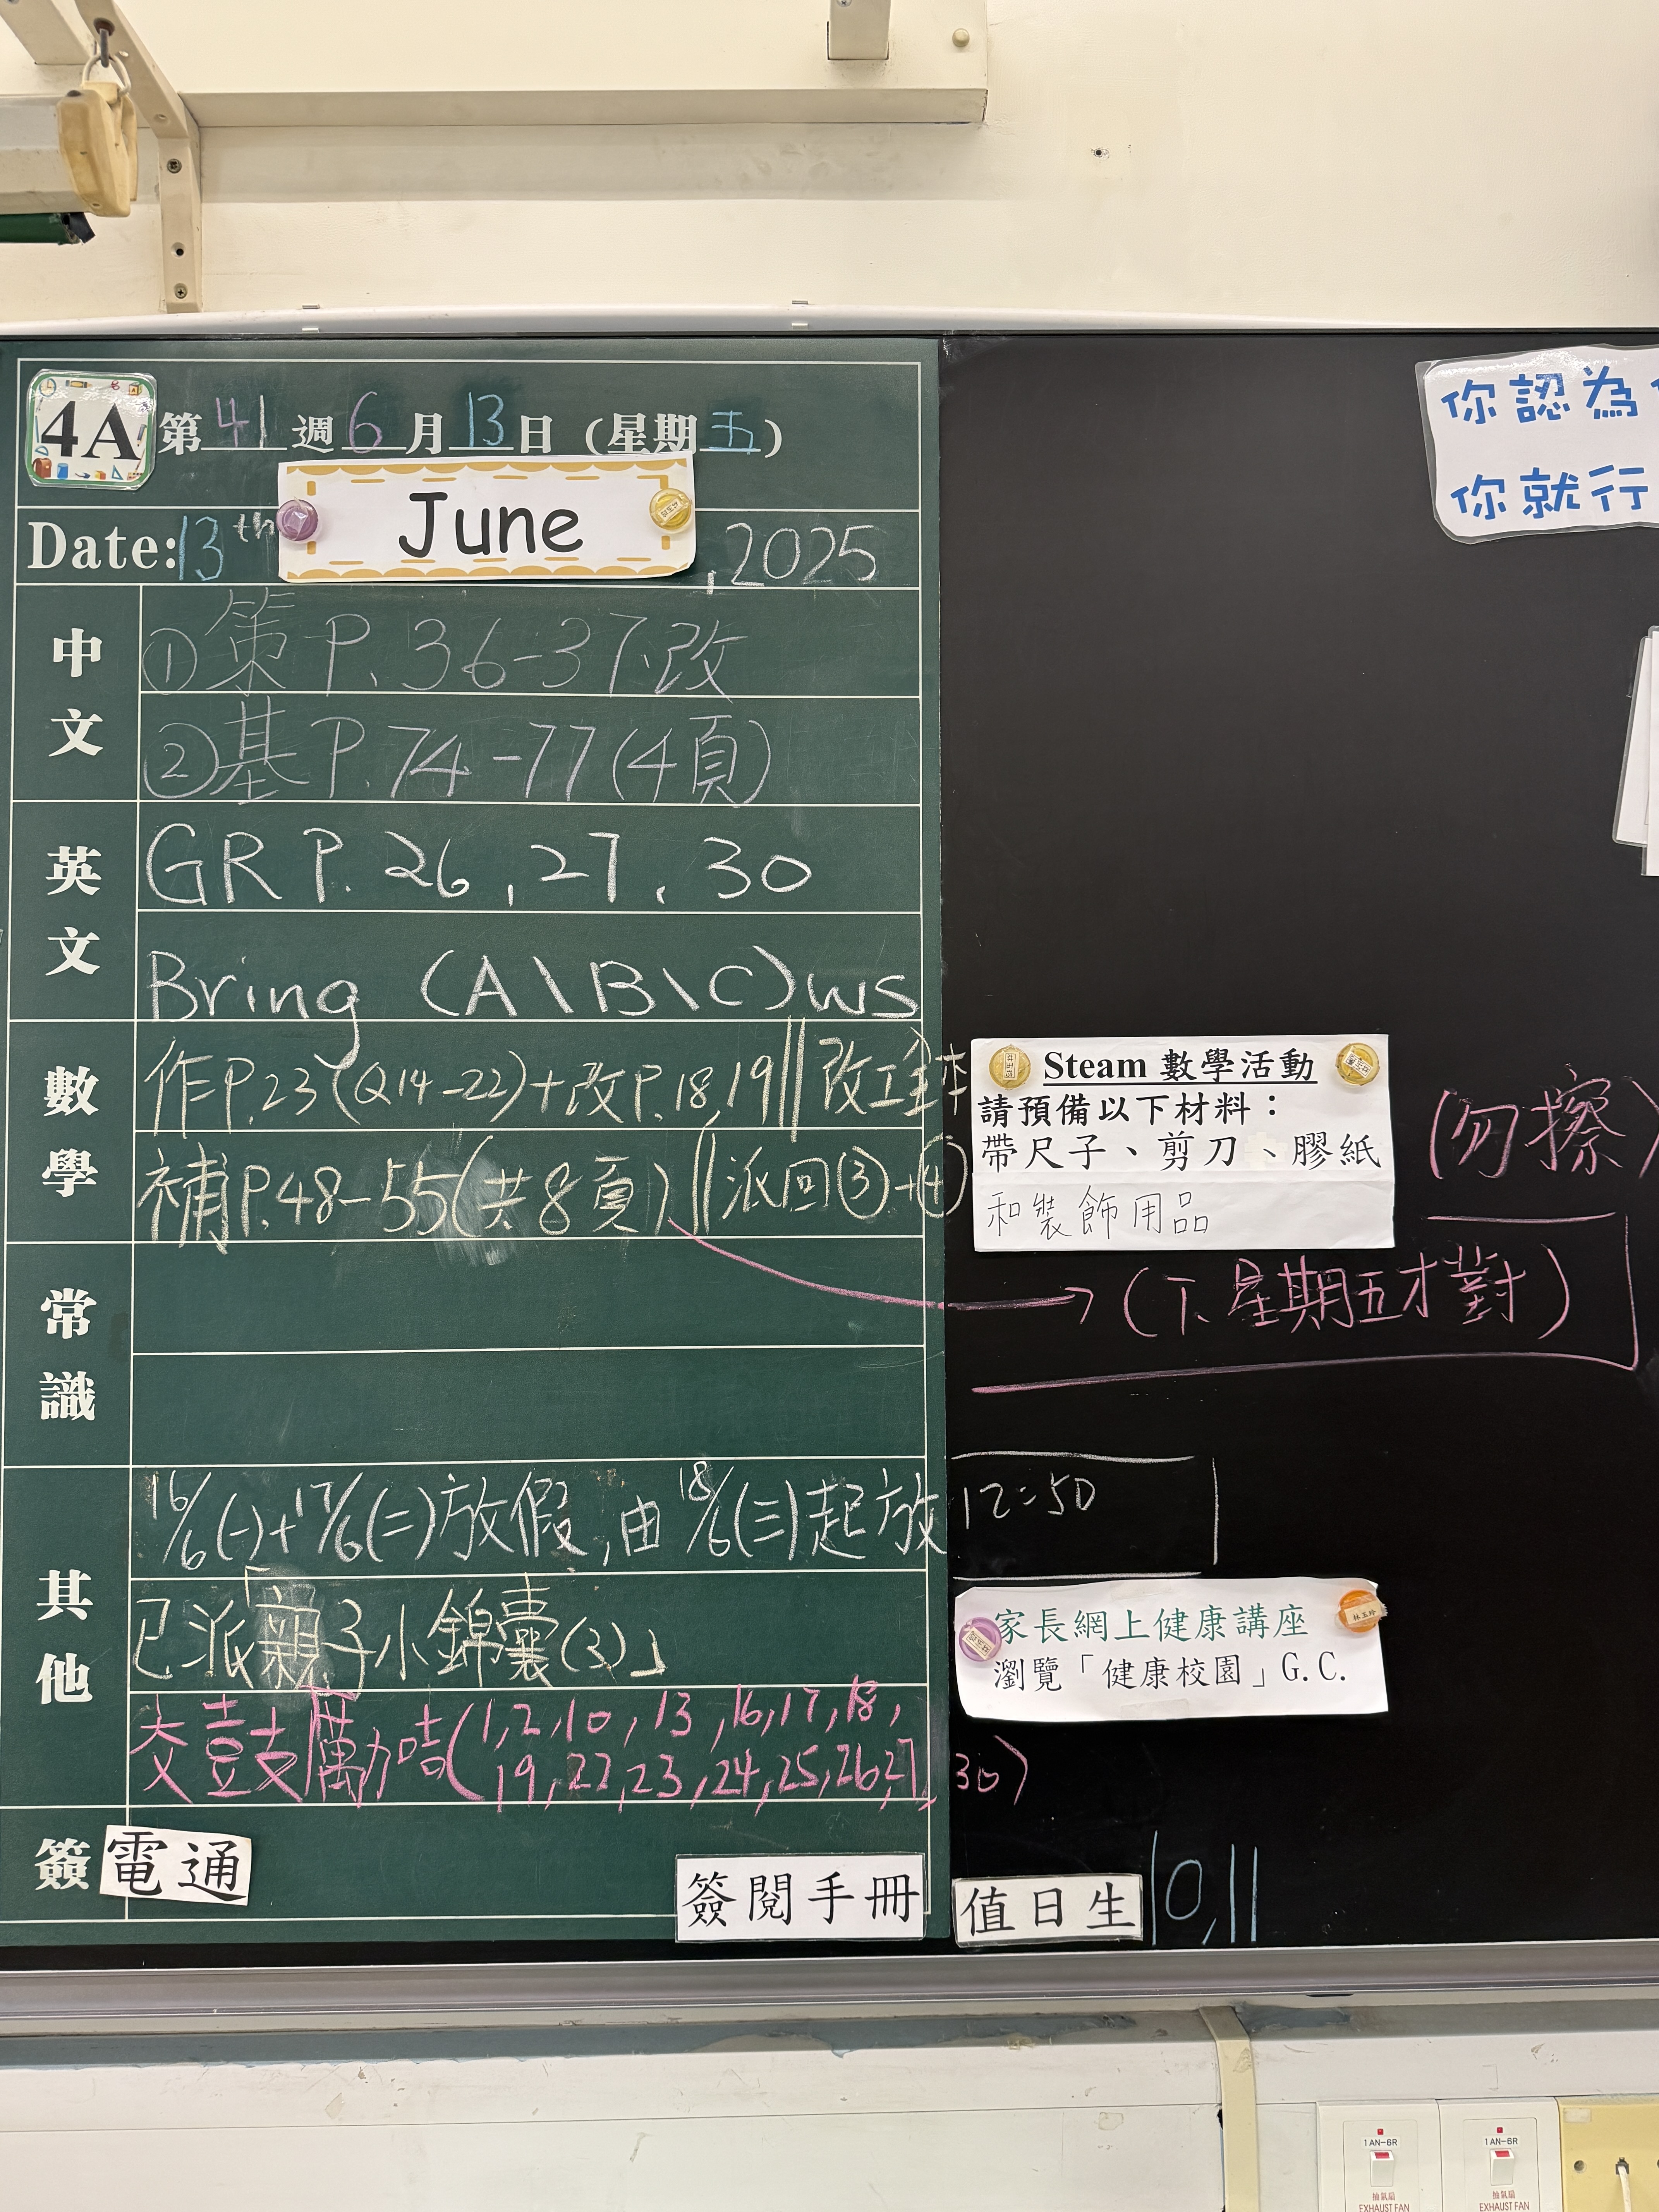 4A 第41週6月13日（星期五）
Date: 13th June, 2025
中文
①策P.36-37改
②基P.74-77(4頁)
英文
GR P. 26, 27, 30
Bring (A\B\C)ws
數學
作P.23(Q14-22)+改P.18,19||改工金本
補P.48-55(共8頁)||派回③+④
→(下星期五才對)
常識
其他
16/6(一)+17/6(二)放假,由18/6(三)起放12:50
已派「親子小錦囊(3)」
交鼓勵咭(1,2,10,13,16,17,18,
19,22,23,24,25,26,27,30)
簽 電通
簽閱手冊
值日生 10,11
你認為
你就行
Steam 數學活動
請預備以下材料：
帶尺子、剪刀、膠紙
和裝飾用品
(勿擦)
家長網上健康講座
瀏覽「健康校園」G.C.
1AN-6R
抽氣扇
EXHAUST FAN
1AN-6R
抽氣扇
EXHAUST FAN